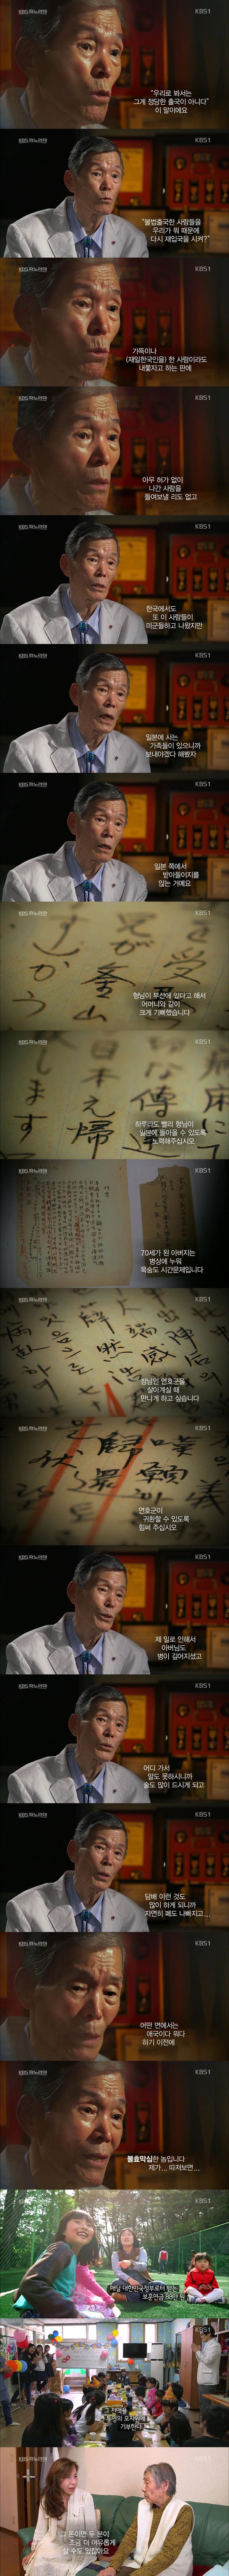 KBS 파노라마
KBS1
"우리로 봐서는
그게 정당한 출국이 아니다"
이 말이에요
KBS 파노라마
KBS1
"불법출국한 사람들을
우리가 뭐 때문에
다시 재입국을 시켜?"
KBS 파노라마
KBS1
가뜩이나
(재일한국인을) 한 사람이라도
내쫓자고 하는 판에
KBS 파노라마
KBS1
아무 허가 없이
나간 사람을
들여보낼 리도 없고
KBS 파노라마
KBS1
한국에서도
또 이 사람들이
미군들하고 나왔지만
KBS 파노라마
KBS1
일본에 사는
가족들이 있으니까
보내야겠다 해봤자
KBS 파노라마
KBS1
일본 쪽에서
받아들이지를
않는 거예요
KBS 파노라마
KBS1
형님이 부산에 있다고 해서
어머니와 같이
크게 기뻐했습니다
KBS 파노라마
KBS1
하루라도 빨리 형님이
일본에 돌아올 수 있도록
노력해주십시오
KBS 파노라마
KBS1
70세가 된 아버지는
병상에 누워
목숨도 시간문제입니다
KBS 파노라마
KBS1
장남인 연호군을
살아계실 때
만나게 하고 싶습니다
KBS 파노라마
KBS1
연호군이
귀환할 수 있도록
힘써 주십시오
KBS 파노라마
KBS1
제 일로 인해서
아버님도
병이 깊어지셨고
KBS 파노라마
KBS1
어디 가서
말도 못하시니까
술도 많이 드시게 되고
KBS 파노라마
KBS1
담배 이런 것도
많이 하게 되니까
자연히 폐도 나빠지고...
KBS 파노라마
KBS1
어떤 면에서는
애국이다 뭐다
하기 이전에
KBS 파노라마
KBS1
불효막심한 놈입니다
제가... 따져보면...
KBS 파노라마
KBS1
매달 대한민국정부로부터 받는
KBS 파노라마
KBS1
기부한다
KBS 파노라마
KBS1
그 돈이면 두 분이
조금 더 여유롭게
살 수도 있잖아요